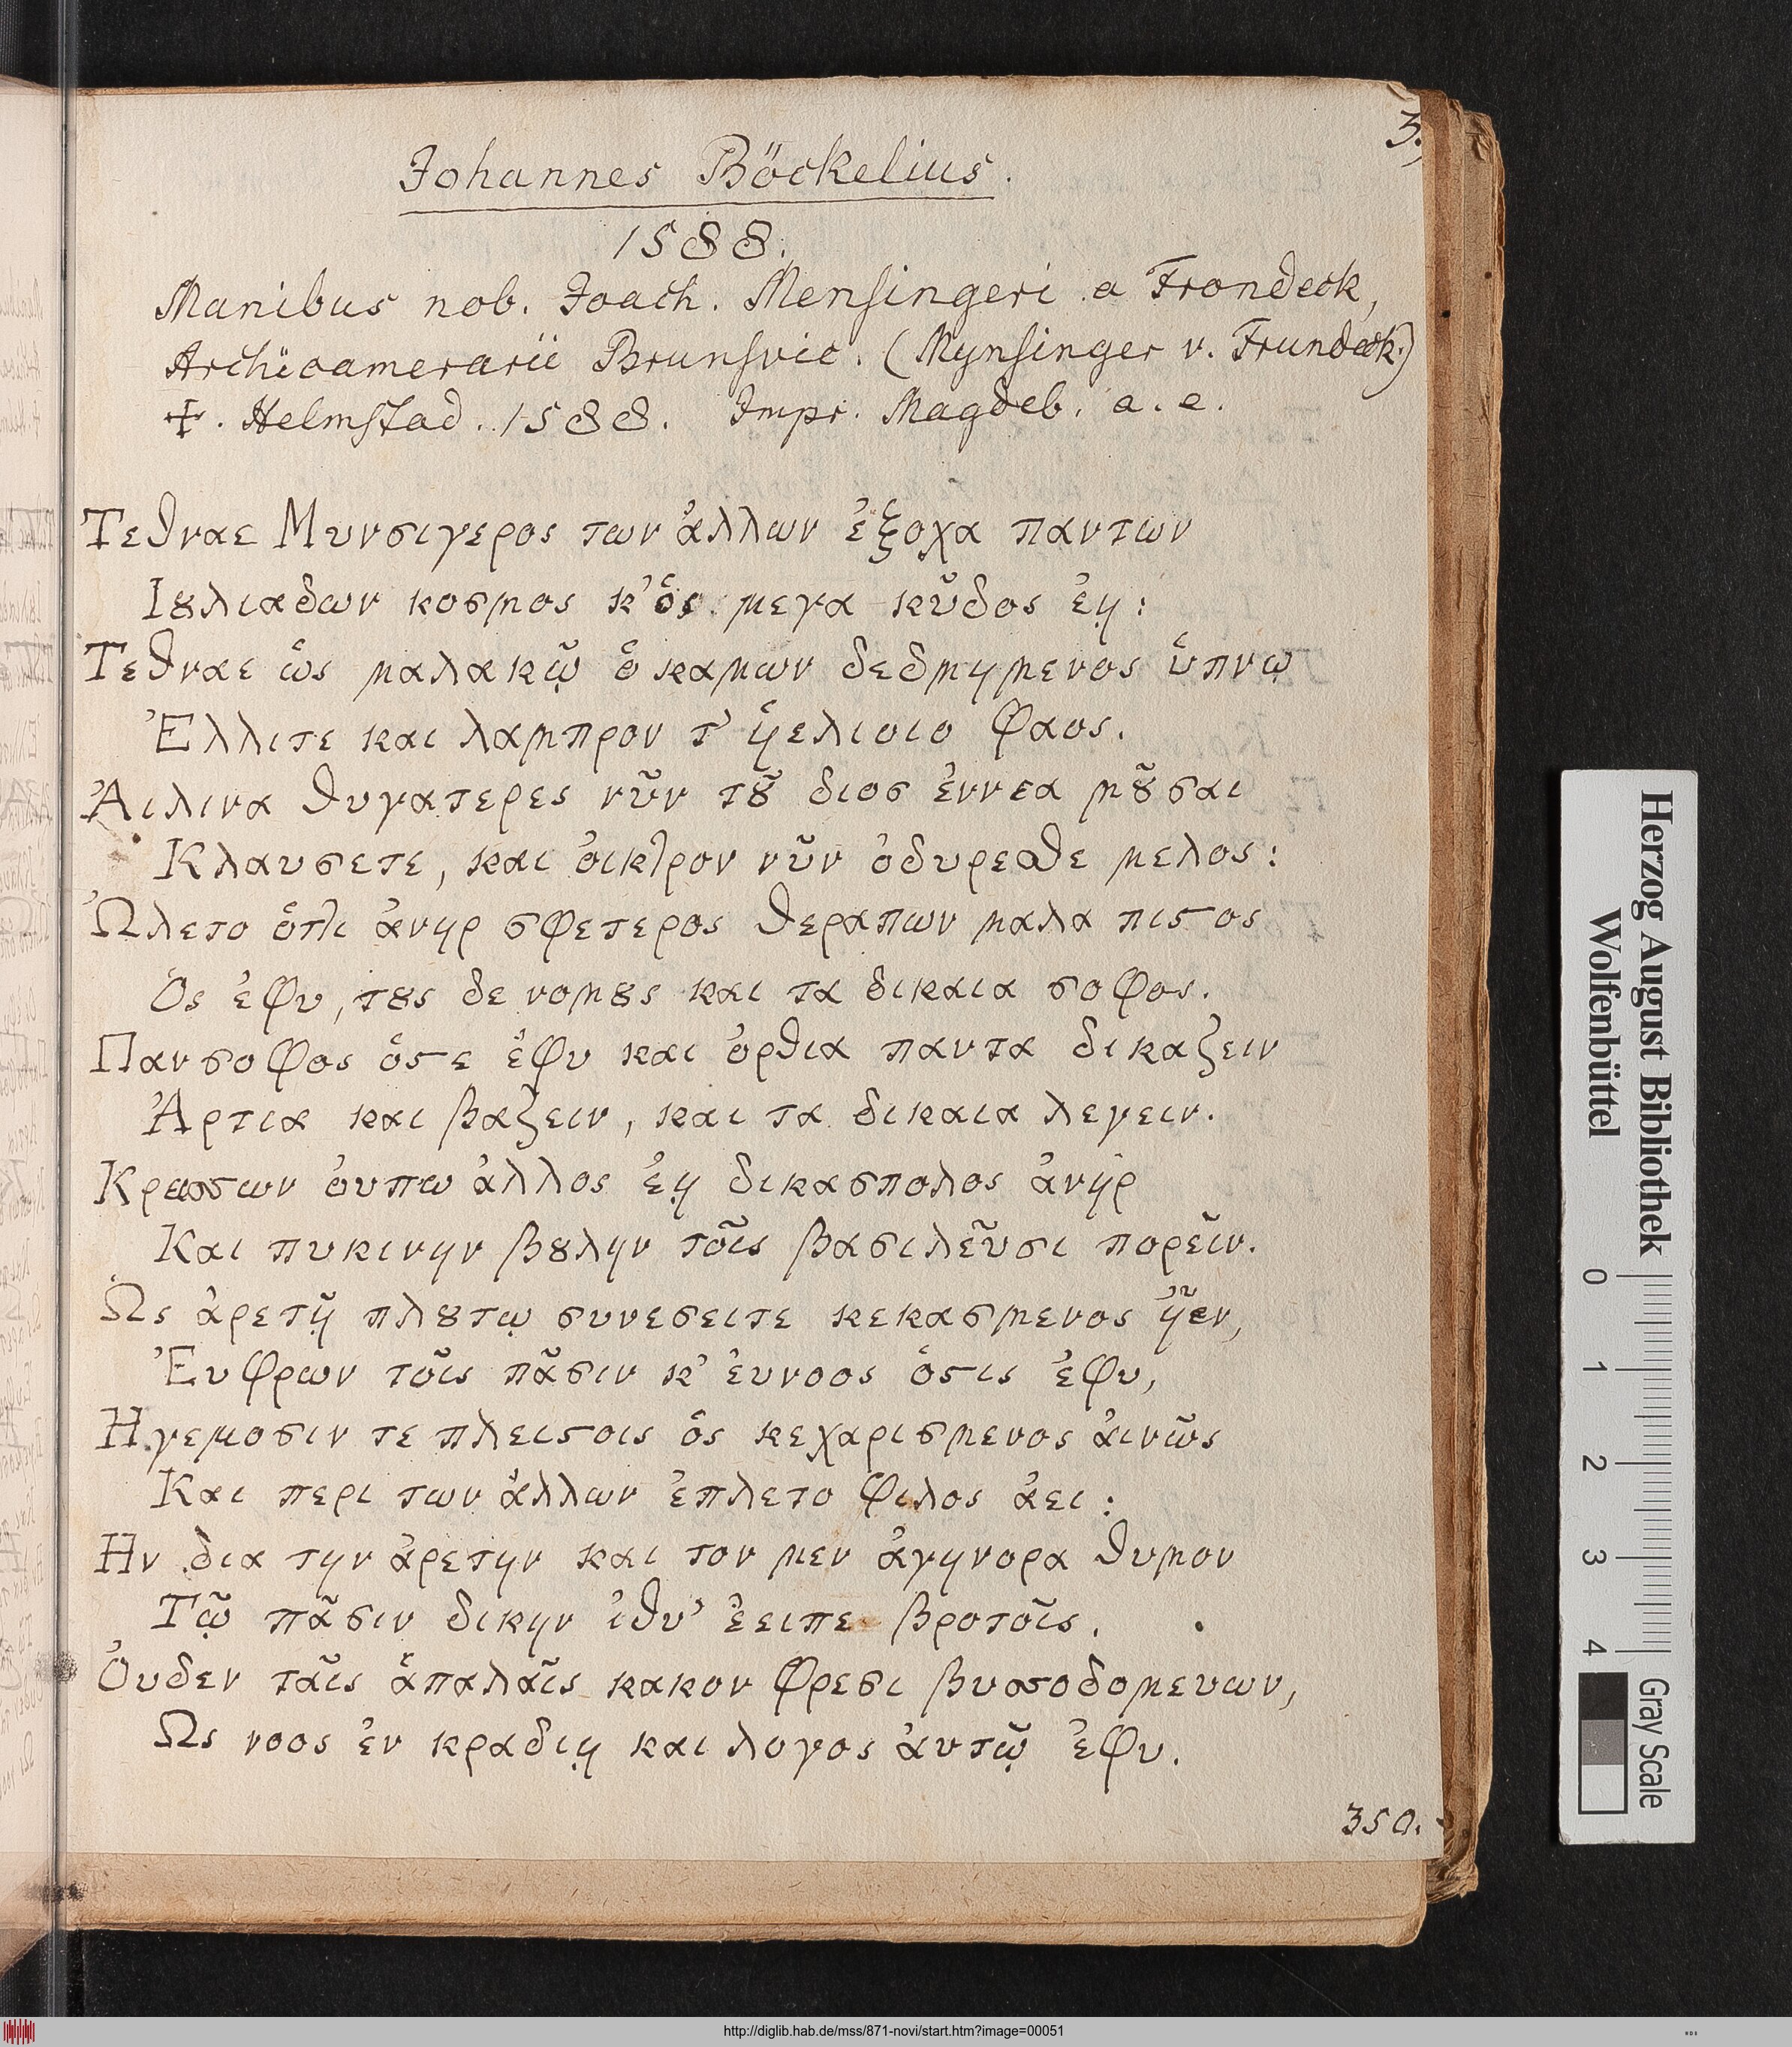 3.
Johannes Böckelius.
1588.
Manibus nob. Joach. Mensingeri a Frondeck,
Archicamerarii Brunsvic. (Mynsinger v. Frundeck.)
✝. Helmstad. 1588. Impr. Magdeb. a. e.
Τεθναε Μυνσιγερος των ἀλλων ἐξοχα παντων
Ιȣλιαδων κοσμος κ' ὁς μεγα κῦδος ἐῃ:
Τεθναε ὡς μαλακῷ ὁ καμων δεδμημενος ὑπνῳ
Ἐλλιτε και λαμπρον τ' ἡελιοιο φαος.
Ἀιλινα θυγατερες νῦν τȣ͂ διοσ ἐννεα μȣ͂σαι
Κλαυσετε, και ὀικτρον νῦν ὀδυρεσθε μελος:
Ὠλετο ὁττι ἀνηρ σφετερος θεραπων μαλα πιϛος
Ὁς ἐφυ, τȣς δε νομȣς και τα δικαια σοφος.
Πανσοφος ὁϛε ἐφυ και ὀρθια παντα δικαζειν
Ἀρτια και βαζειν, και τα δικαια λεγειν.
Κρασσων ὀυπω ἀλλος ἐῃ δικασπολος ἀνηρ
Και πυκινην βȣλην τοῖς βασιλεῦσι πορεῖν.
Ὡς ἀρετῇ πλȣτῳ συνεσειτε κεκασμενος ἠεν,
Ἐυφρων τοῖς πᾶσιν κ' ἐυνοος ὁϛις ἐφυ,
Ηγεμοσιν τε πλειϛοις ὁς κεχαρισμενος ἀινῶς
Και περι των ἀλλων ἐπλετο φιλος ἀει:
Ην δια την ἀρετην και τον μεν ἀγηνορα θυμον
Τῷ πᾶσιν δικην ἰθυ' ἐειπε βροτοῖς.
Ὀυδεν ταῖς ἁπαλαῖς κακον φρεσι βυσσοδομευων,
Ως νοος ἐν κραδιῃ και λογος ἀυτῷ ἐφυ.
350.
Herzog August Bibliothek
Wolfenbüttel
0 1 2 3 4
Gray Scale
http://diglib.hab.de/mss/871-novi/start.htm?image=00051